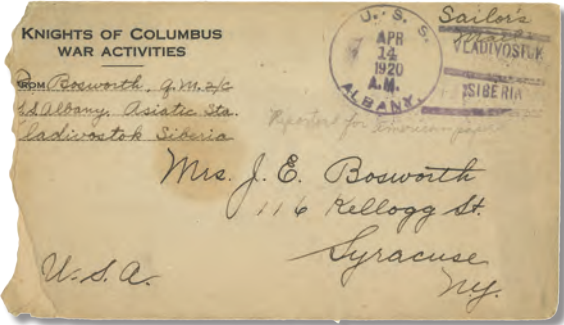 KNIGHTS OF COLUMBUS
WAR ACTIVITIES
FROM Bosworth, Q.M. 2/C
U.S.S. Albany. Asiatic Sta.
Vladivostok Siberia
U. S. S.
APR
14
1920
A.M.
ALBANY
Sailor's
Mail
VLADIVOSTOK
SIBERIA
Reported for American papers
Mrs. J. E. Bosworth
116 Kellogg St.
Syracuse
N.Y.
U.S.A.